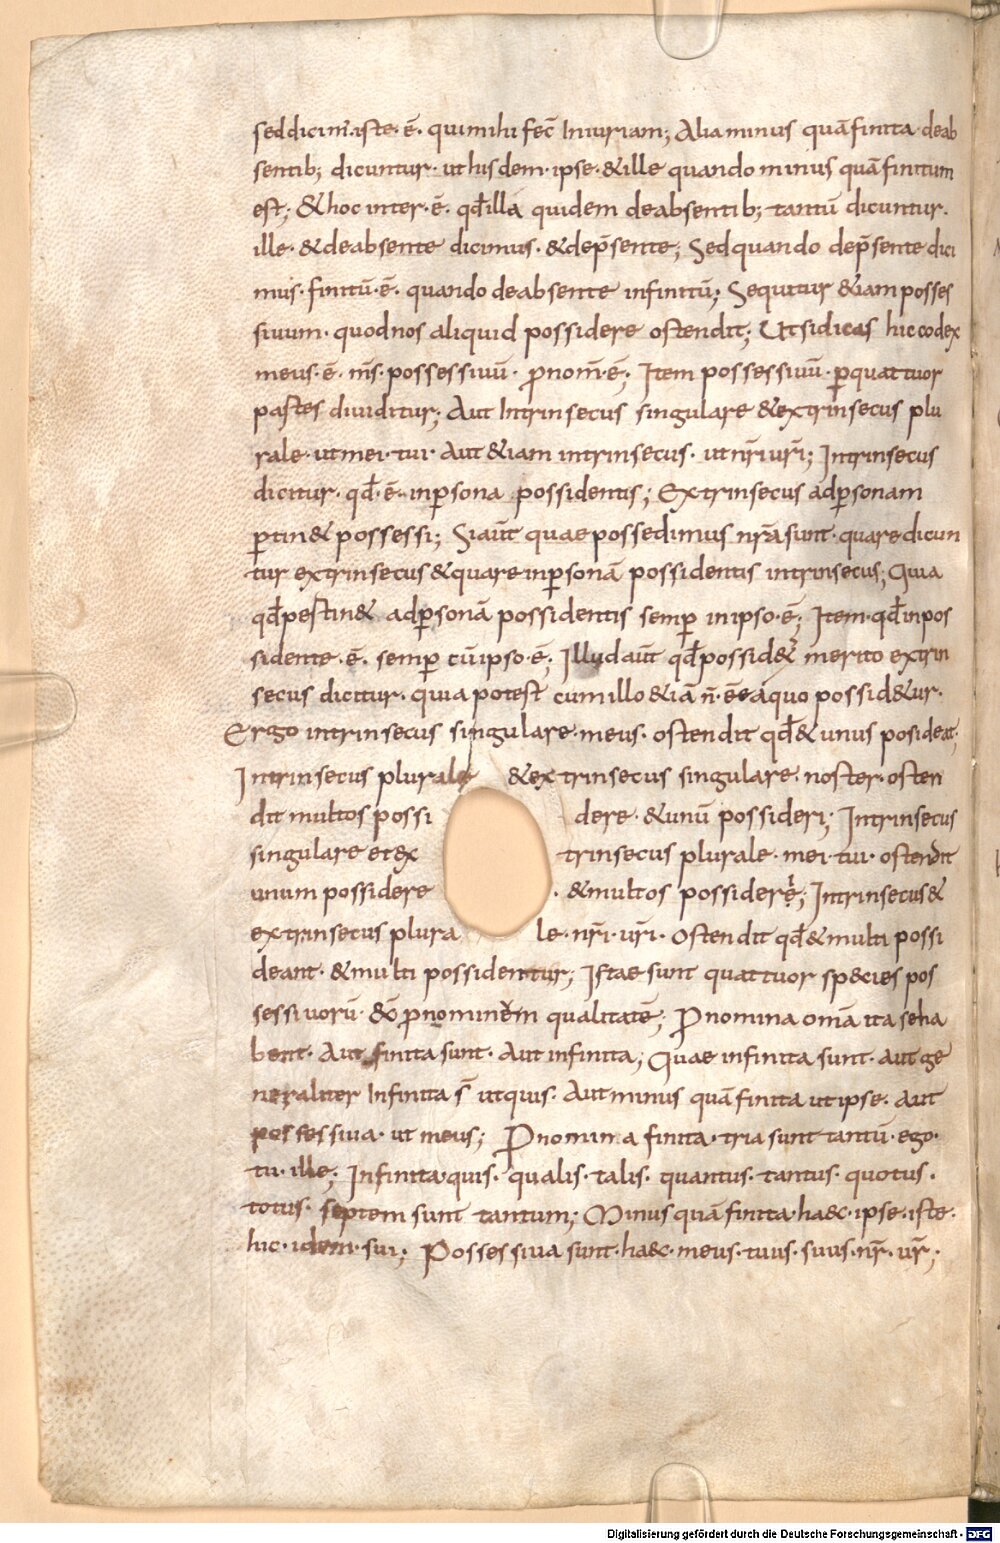 seddicim̅·iste·ē· quimihi fec̅ Iniuriam; Alia minus quā finita· deab
sentib; dicuntur· ut his dem· ipse· &ille quando minus quā finitum
est; &hoc inter·ē· qđ illa quidem deabsentib; tantū dicuntur·
ille· &deabsente dicimus· &dep̅sente; Sed quando dep̅sente dici
mus· finitū·ē· quando deabsente infinitū; Sequitur &iam posses
siuum· quod nos aliquid possidere ostendit; Ut si dicas hic codex
meus·ē· m̅s· possessiuū· ꝓnom̅·ē; Item possessiuū· ꝑquattuor
partes diuiditur; Aut Intrinsecus singulare &extrinsecus plu
rale· ut mei· tui· Aut &iam intrinsecus· ut nr̅i ur̅i; Intrinsecus
dicitur· qđ·ē· inꝑsona possidentis; Extrinsecus adꝑsonam
ꝑtin& possessi; Si aut̅ quae possedimus nr̅a sunt· quare dicun
tur extrinsecus & quare inꝑsonā possidentis intrinsecus; Quia
qđ pertin& adꝑsonā possidentis semꝑ in ipso·ē; Item· qđ in pos
sidente·ē· semꝑ cū ipso·ē; Illud aut̅ qđ possid&ur merito extrin
secus dicitur· quia potest cum illo &iā n̅·ēē a quo possid&ur·
Ergo intrinsecus singulare· meus· ostendit qđ & unus posideat;
Intrinsecus plurale &extrinsecus singulare· noster· osten
dit multos possi dere· &unū possideri; Intrinsecus
singulare et ex trinsecus plurale· mei· tui· ostendit
unum possidere · &multos possideri; Intrinsecus &
extrinsecus plura le· nr̅i· ur̅i· Ostendit qđ & multi possi
deant· &multi possidentur; Istae sunt quattuor sp&cies pos
sessiuorū· &ō ꝓnominem qualitatē; Pnomina om̅a ita se ha
bent· Aut finita sunt· Aut infinita; Quae infinita sunt· aut ge
neraliter Infinita s̅ ut quis· Aut minus quā finita ut ipse· Aut
possessiua· ut meus; Pnomina finita· tria sunt tantū· ego·
tu· ille; Infinita· quis· qualis· talis· quantus· tantus· quotus·
totus· septem sunt tantum; Minus quā finita· haec· ipse· iste·
hic· idem· sui; Possessiua sunt· haec· meus· tuus· suus· nr̅· ur̅;
Digitalisierung gefördert durch die Deutsche Forschungsgemeinschaft - DFG